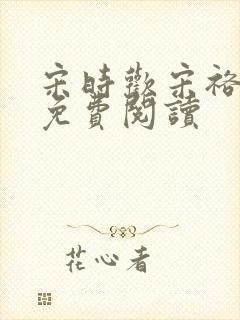 宋時歡宋裕
免費閱讀
花心者